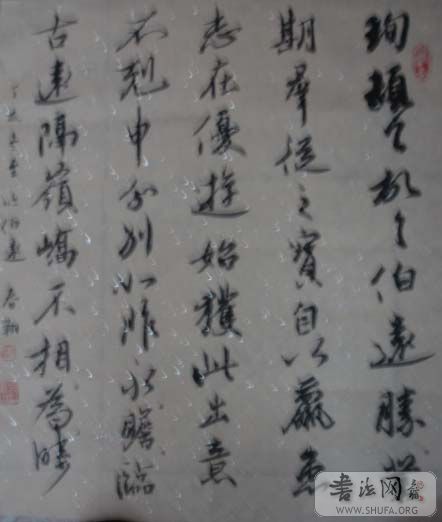 珣頓首頓首伯遠勝業
期羣從之寶自以羸患
志在優遊始獲此出意
不剋申分別如昨永瞻臨
古遠隔嶺嶠不相為疇
丁亥 临伯遠
書法网
WWW.SHUFA.ORG